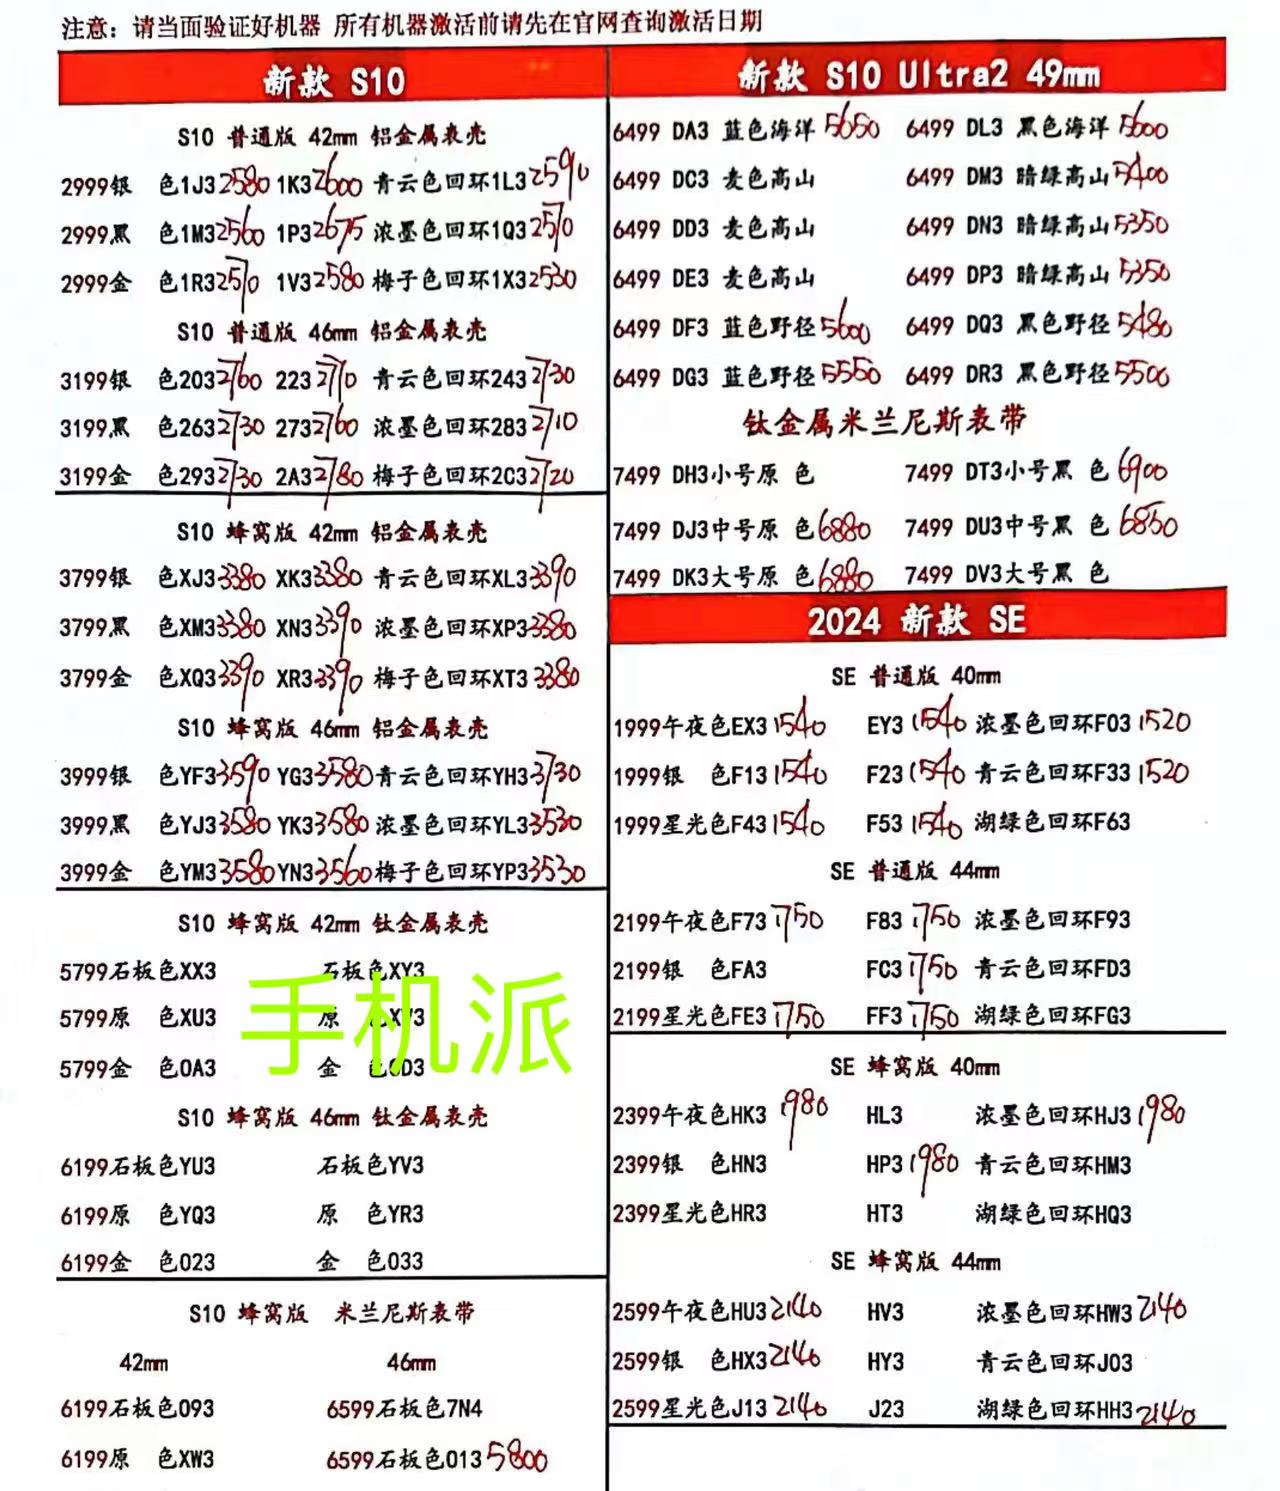 注意：请当面验证好机器 所有机器激活前请先在官网查询激活日期
新款 S10
S10 普通版 42mm 铝金属表壳
2999银 色1J3 2580 1K3 2600 青云色回环1L3 2590
2999黑 色1M3 2560 1P3 2675 浓墨色回环1Q3 2570
2999金 色1R3 2570 1V3 2580 梅子色回环1X3 2530
S10 普通版 46mm 铝金属表壳
3199银 色203 2760 223 2770 青云色回环243 2730
3199黑 色263 2730 273 2760 浓墨色回环283 2710
3199金 色293 2730 2A3 2780 梅子色回环2C3 2720
S10 蜂窝版 42mm 铝金属表壳
3799银 色XJ3 3380 XK3 3380 青云色回环XL3 3390
3799黑 色XM3 3380 XN3 3390 浓墨色回环XP3 3380
3799金 色XQ3 3390 XR3 3390 梅子色回环XT3 3380
S10 蜂窝版 46mm 铝金属表壳
3999银 色YF3 3590 YG3 3580 青云色回环YH3 3730
3999黑 色YJ3 3580 YK3 3580 浓墨色回环YL3 3530
3999金 色YM3 3580 YN3 3560 梅子色回环YP3 3530
S10 蜂窝版 42mm 钛金属表壳
5799石板色XX3 石板色XY3
5799原 色XU3 原 色XV3
5799金 色0A3 金 色0D3
手机派
S10 蜂窝版 46mm 钛金属表壳
6199石板色YU3 石板色YV3
6199原 色YQ3 原 色YR3
6199金 色023 金 色033
S10 蜂窝版 米兰尼斯表带
42mm 46mm
6199石板色093 6599石板色7N4
6199原 色XW3 6599石板色013 5800
新款 S10 Ultra2 49mm
6499 DA3 蓝色海洋 5650 6499 DL3 黑色海洋 5600
6499 DC3 麦色高山 6499 DM3 暗绿高山 5400
6499 DD3 麦色高山 6499 DN3 暗绿高山 5350
6499 DE3 麦色高山 6499 DP3 暗绿高山 5350
6499 DF3 蓝色野径 5600 6499 DQ3 黑色野径 5480
6499 DG3 蓝色野径 5550 6499 DR3 黑色野径 5500
钛金属米兰尼斯表带
7499 DH3小号原 色 7499 DT3小号黑 色 6900
7499 DJ3中号原 色 6880 7499 DU3中号黑 色 6850
7499 DK3大号原 色 6880 7499 DV3大号黑 色
2024 新款 SE
SE 普通版 40mm
1999午夜色EX3 1540 EY3 1540 浓墨色回环F03 1520
1999银 色F13 1540 F23 1540 青云色回环F33 1520
1999星光色F43 1540 F53 1540 湖绿色回环F63
SE 普通版 44mm
2199午夜色F73 1750 F83 1750 浓墨色回环F93
2199银 色FA3 FC3 1750 青云色回环FD3
2199星光色FE3 1750 FF3 1750 湖绿色回环FG3
SE 蜂窝版 40mm
2399午夜色HK3 1980 HL3 浓墨色回环HJ3 1980
2399银 色HN3 HP3 1980 青云色回环HM3
2399星光色HR3 HT3 湖绿色回环HQ3
SE 蜂窝版 44mm
2599午夜色HU3 2140 HV3 浓墨色回环HW3 2140
2599银 色HX3 2140 HY3 青云色回环J03
2599星光色J13 2140 J23 湖绿色回环HH3 2140